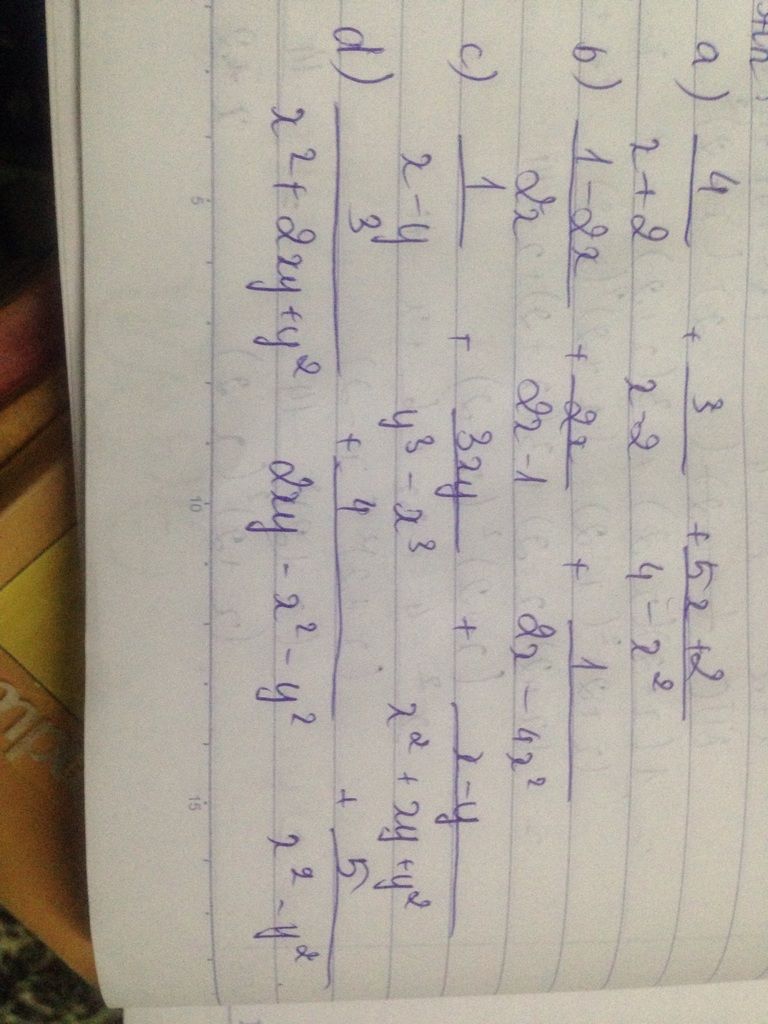 a) 4/(x+2) + 3/(x-2) + (5x+2)/(4-x²)
b) (1-2x)/2x + 2x/(2x-1) + 1/(2x-4x²)
c) 1/(x-y) + 3xy/(y³-x³) + (x-y)/(x²+xy+y²)
d) 3/(x²+2xy+y²) + 4/(2xy-x²-y²) + 5/(x²-y²)
5 10 15